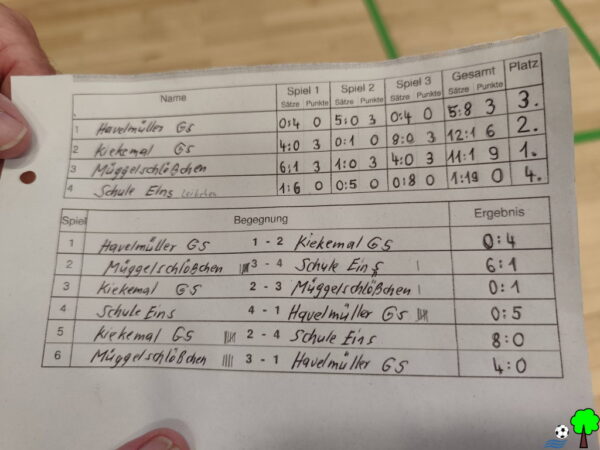 Name Spiel 1 Spiel 2 Spiel 3 Gesamt Platz
Sätze Punkte Sätze Punkte Sätze Punkte Sätze Punkte
1 Havelmüller GS 0:4 0 5:0 3 0:4 0 5:8 3 3.
2 Kiekemal GS 4:0 3 0:1 0 8:0 3 12:1 6 2.
3 Müggelschlößchen 6:1 3 1:0 3 4:0 3 11:1 9 1.
4 Schule Eins 1:6 0 0:5 0 0:8 0 1:19 0 4.
Spiel Begegnung Ergebnis
1 Havelmüller GS 1 - 2 Kiekemal GS 0:4
2 Müggelschlößchen 3 - 4 Schule Eins 6:1
3 Kiekemal GS 2 - 3 Müggelschlößchen 0:1
4 Schule Eins 4 - 1 Havelmüller GS 0:5
5 Kiekemal GS 2 - 4 Schule Eins 8:0
6 Müggelschlößchen 3 - 1 Havelmüller GS 4:0